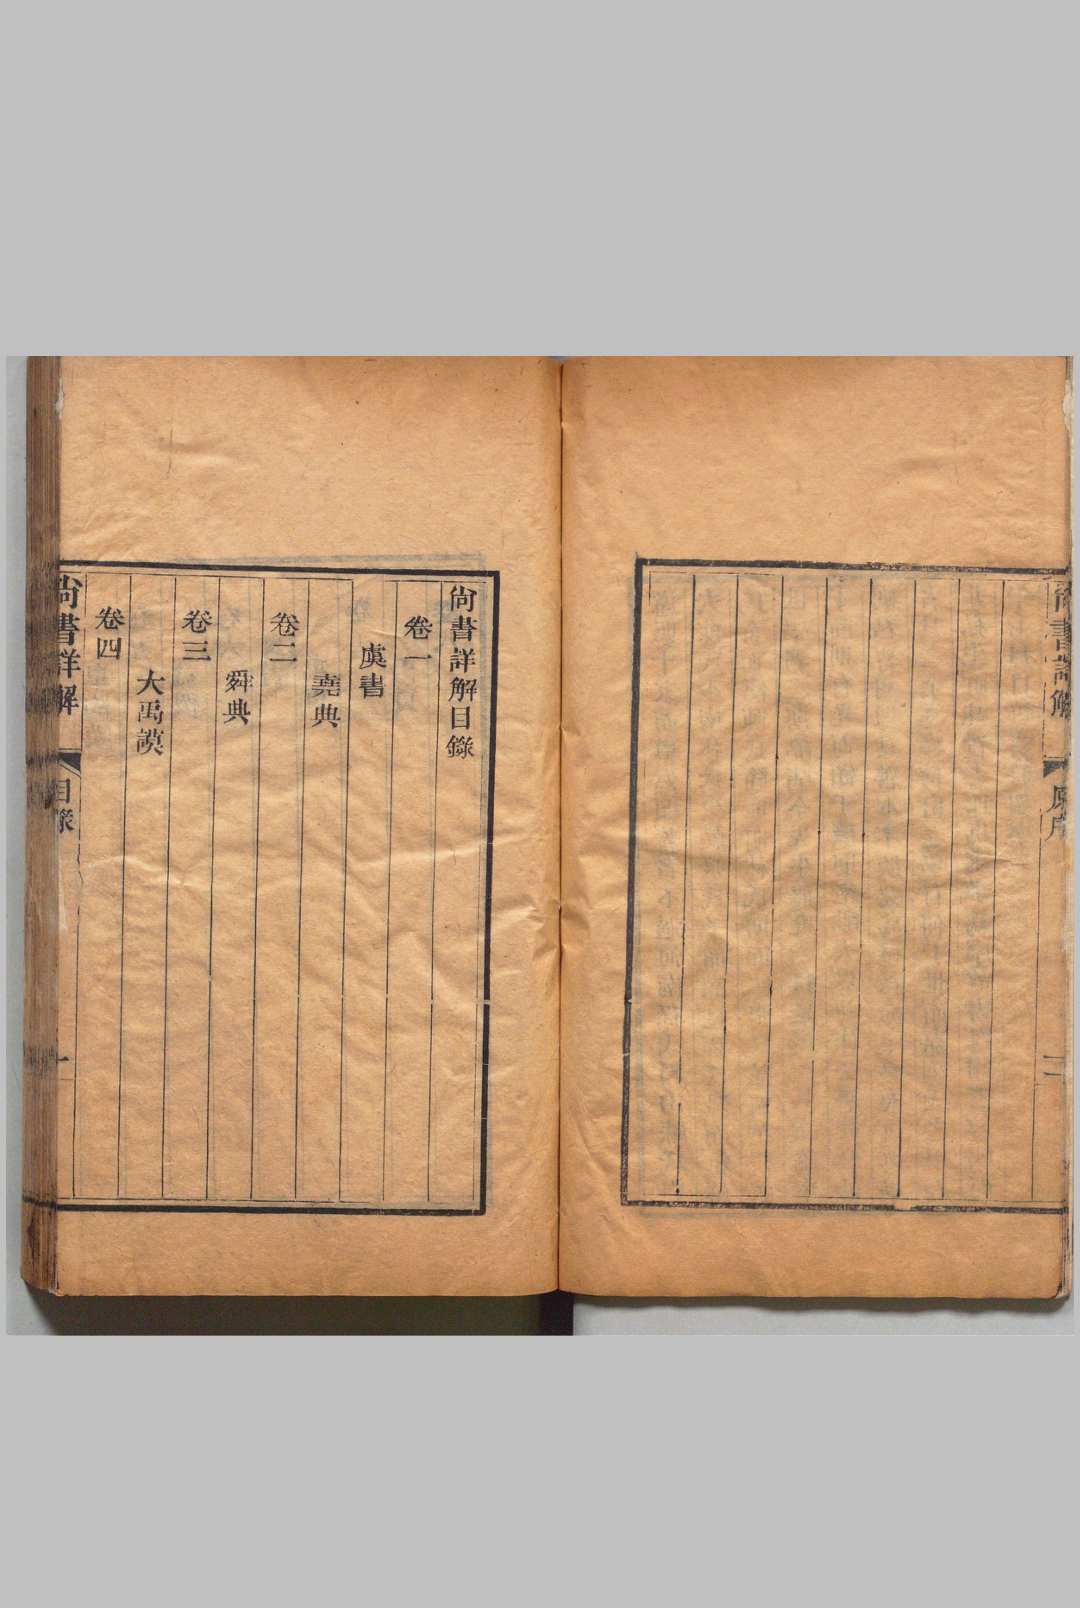 尚書詳解
原序
二
尚書詳解目錄
卷一
虞書
堯典
卷二
舜典
卷三
大禹謨
卷四
尚書詳解
目錄
一